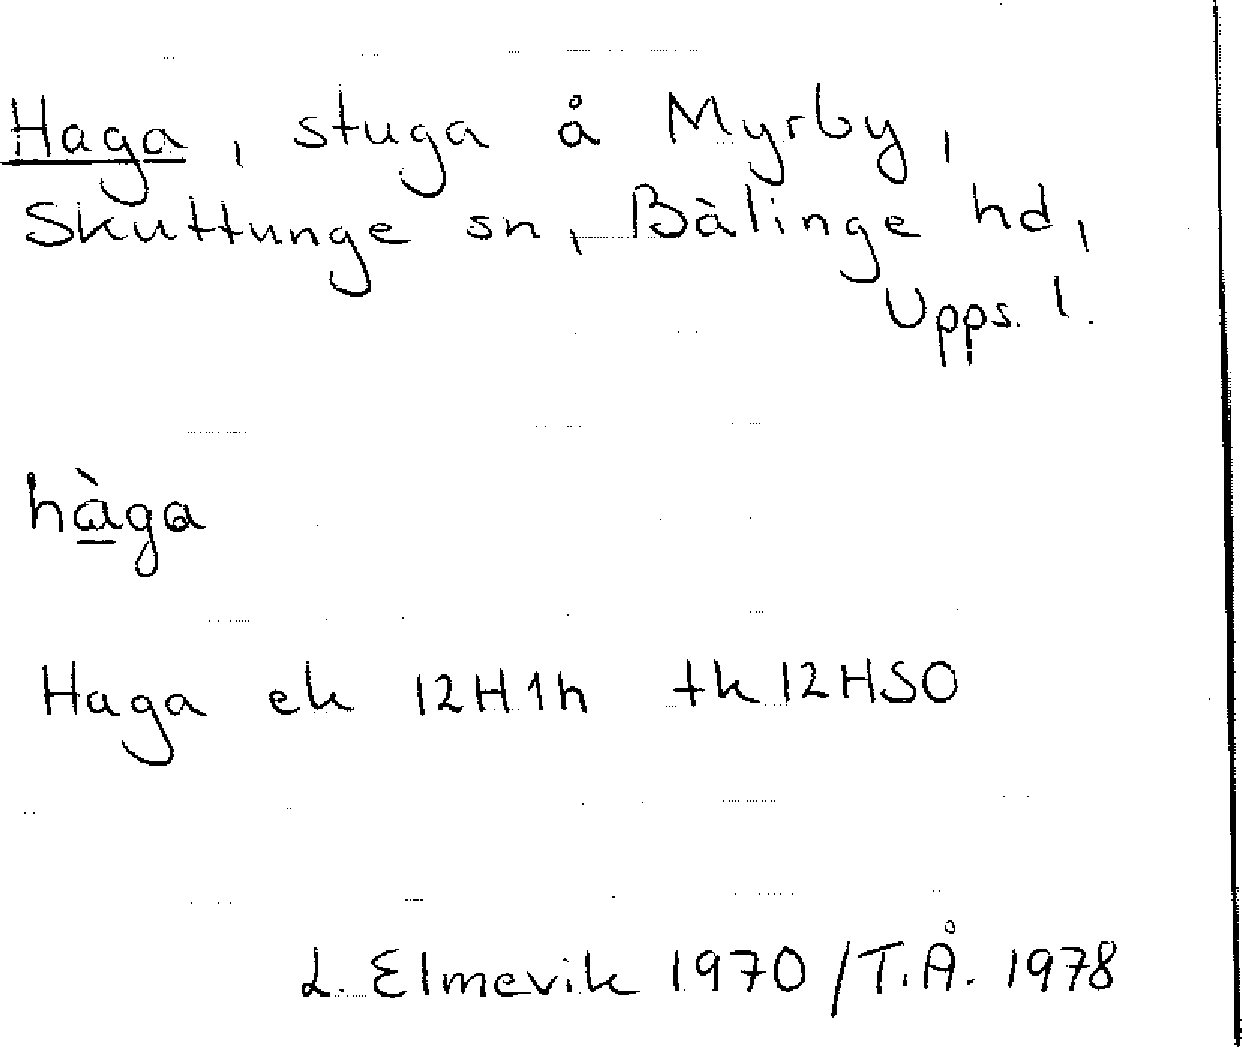 Haga, stuga å Myrby,
Skuttunge sn, Bälinge hd,
Upps. l.
hàga
Haga ek 12H1h tk 12HSO
L. Elmevik 1970/T.Å. 1978